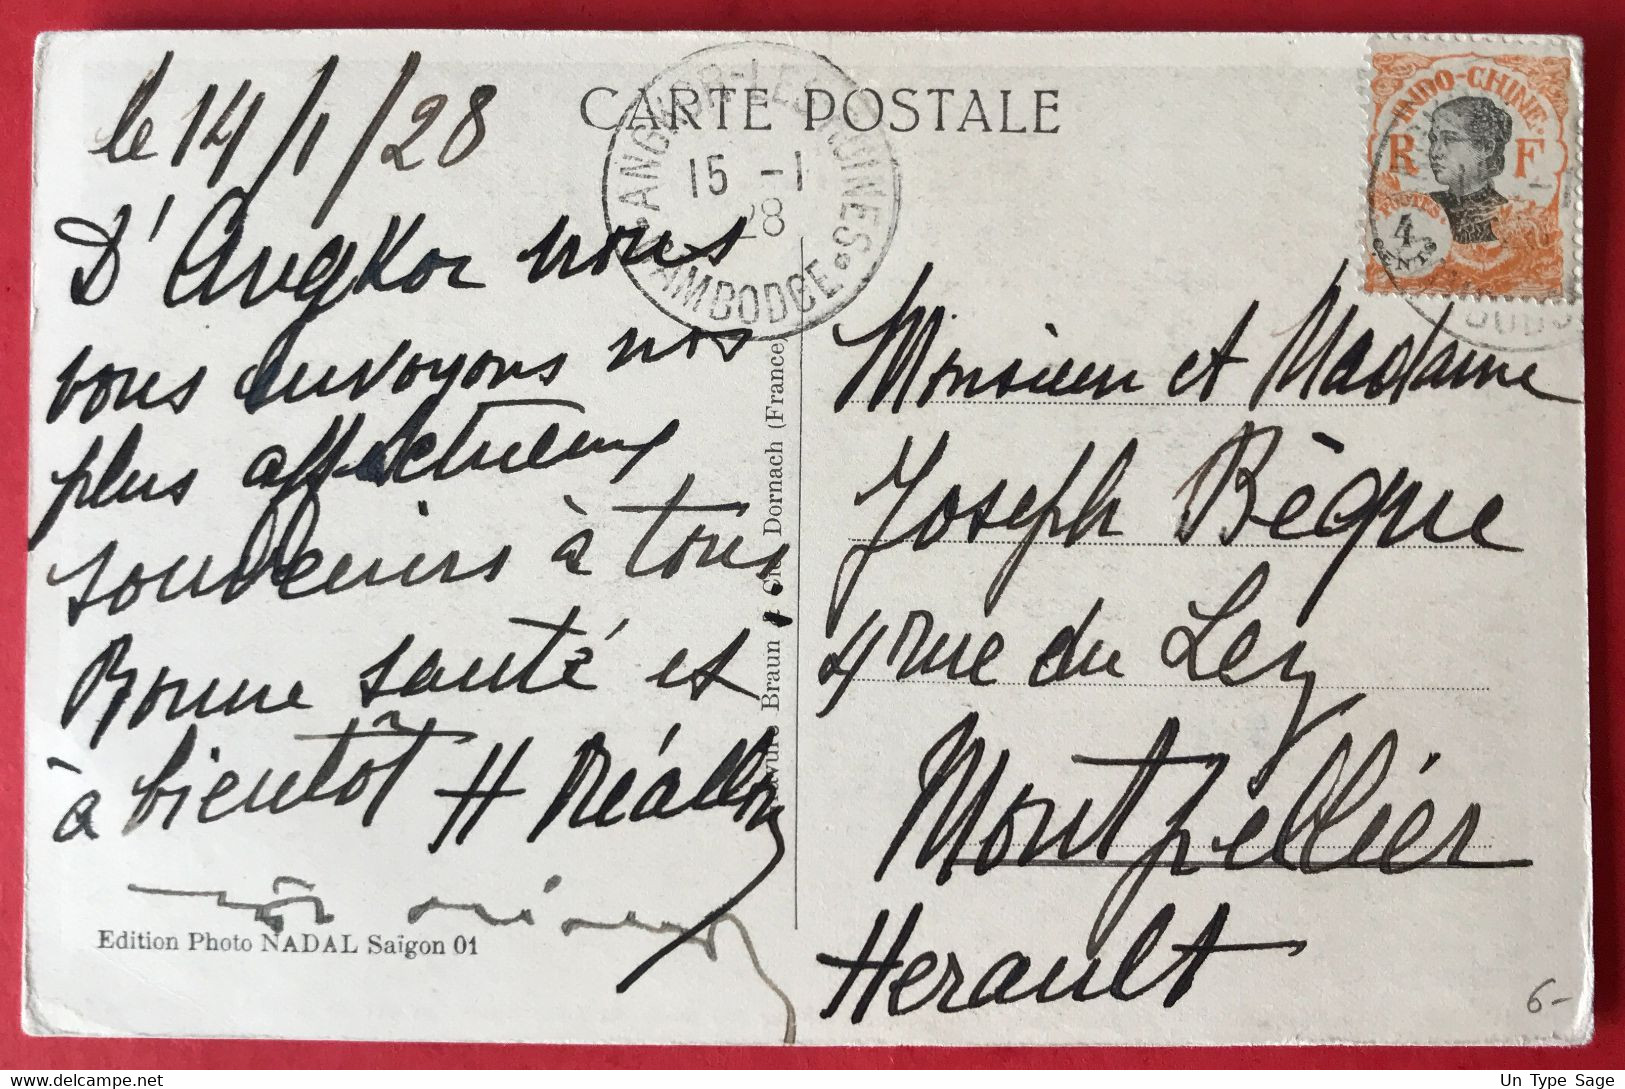 CARTE POSTALE
le 14/1/28
D'Angkor nous
vous envoyons nos
plus affectueux
souvenirs à tous
Bonne santé et
à bientôt H Réallon
Edition Photo NADAL Saïgon 01
Braun & Cie, Dornach (France)
ANGKOR-LES-RUINES
15 -1
28
CAMBODGE
INDO-CHINE
R F
POSTES
4
CENTS
Monsieur et Madame
Joseph Bèque
4 rue du Lez
Montpellier
Herault
6-
Un Type Sage